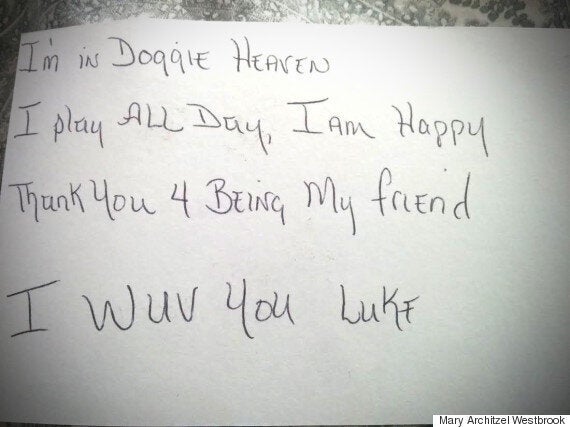 I'm in Doggie Heaven
I play ALL Day, I Am Happy
Thank You 4 Being My friend
I Wuv You Luke
Mary Architzel Westbrook